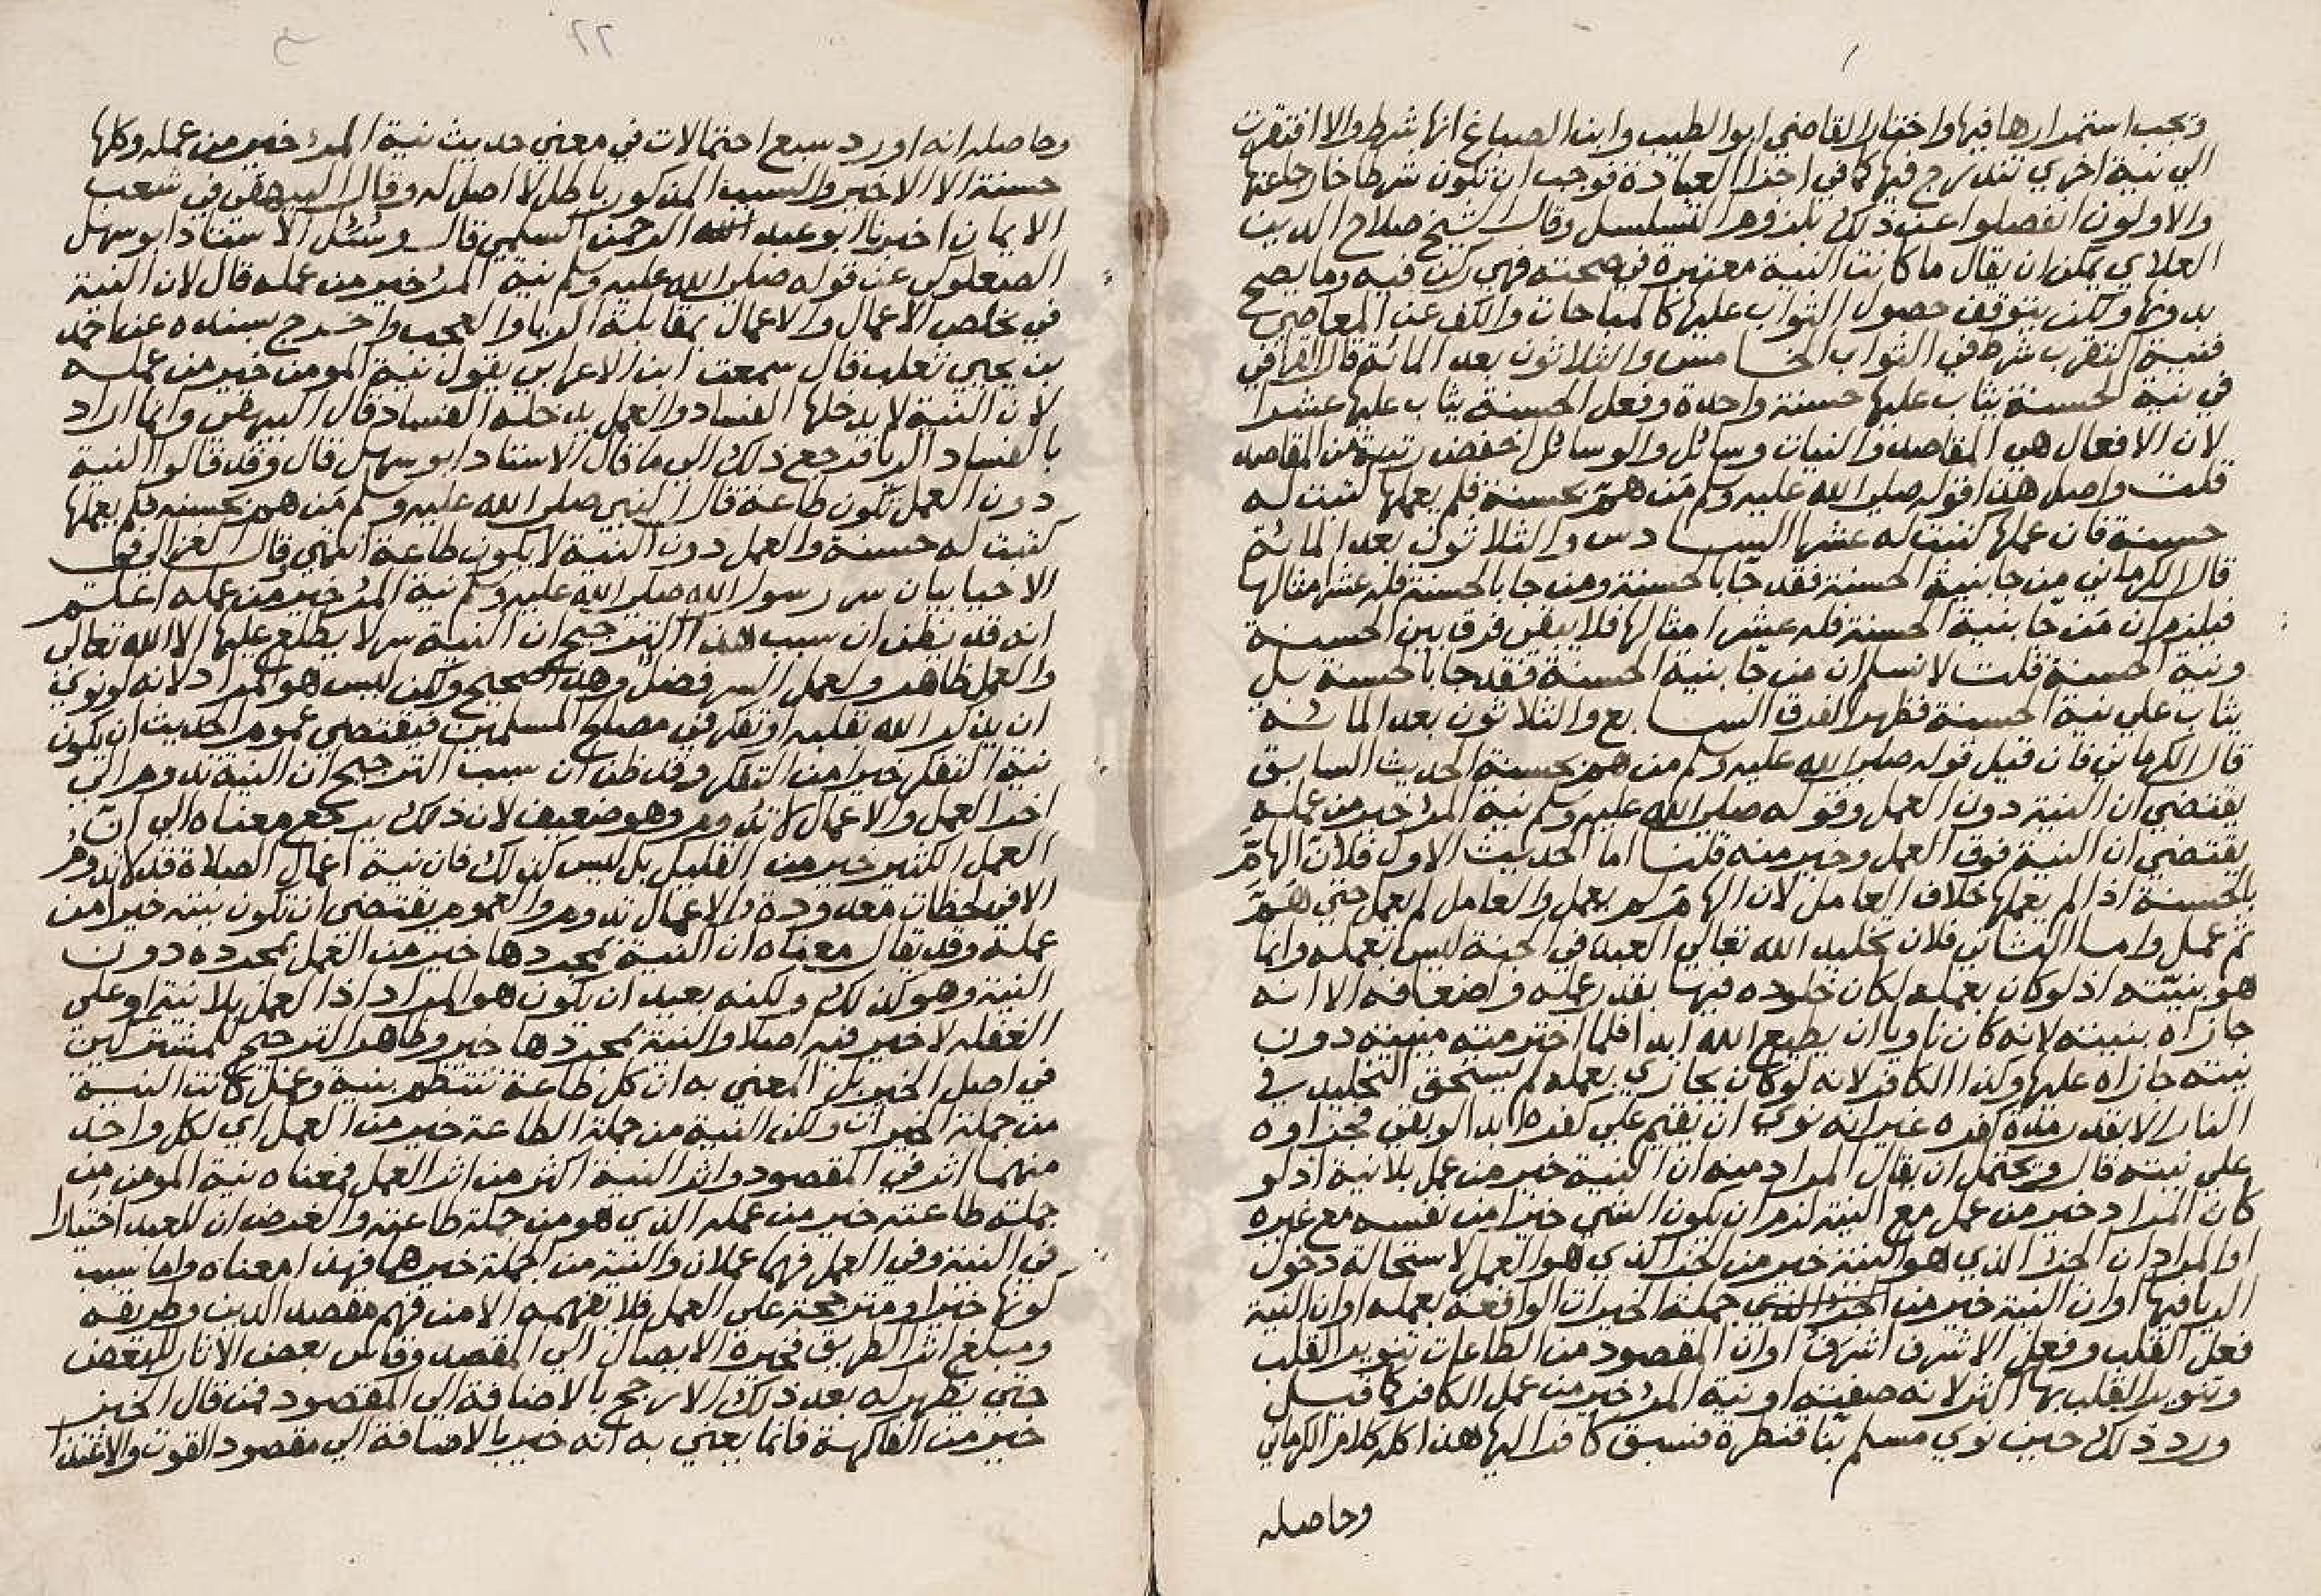 وتجب استمرارها فيها واختار القاضي ابوا الطيب وابن الصباغ انها شرط والا افتقرت
الي نية اخري تندرج فيها كما في اجزا العبادة فوجب ان تكون شرطا خارجا عنها
والاولون انفصلوا عن ذلك بلزوم التسلسل وقال الشيخ صلاح الدين
العلاي يمكن ان يقال ما كانت النية معتبرة في صحته فهي ركن فيه وما يصح
بدونها ولكن يتوقف حصول الثواب عليها كالمباحات والكف عن المعاصي
فنية التقرب شرط في الثواب الخامس والثلاثون بعد المائة قال القرافي
في نية الحسنة يثاب عليها حسنة واحدة وفعل الحسنة يثاب عليها عشرا
لان الافعال هي المقاصد والنيات وسائل والوسائل اخفض رتبة من المقاصد
قلت واصل هذا قوله صلي الله عليه وسلم مَن همّ بحسنة فلم يعملها كتبت له
حسنة فان عملها كتبت له عشرا السادس والثلاثون بعد المائة
قال الكرماني من جا بنية الحسنة فقد جا بالحسنة ومن جا بالحسنة فله عشر امثالها
فيلزم ان مَن جا بنية الحسنة فله عشر امثالها فلا يبقي فرق بين الحسنة
ونية الحسنة قلت لا نسلم ان من جا بنية الحسنة فقد جا بالحسنة بل
يثاب علي نية الحسنة فظهر الفرق السابع والثلاثون بعد المائه
قال الكرماني فان قيل قوله صلي الله عليه وسلم من هم بحسنة الحديث السابق
يقتضي ان النية دون العمل وقوله صلي الله عليه وسلم نية المرء خير من عمله
يقتضي ان النية فوق العمل وخير منه قلنا اما الحديث الاول فلانّ الهامّ
بالحسنة اذا لم يعملها خلاف العامل لان الهامّ لم يعمل والعامل لم يعمل حتي هَمَّ
ثم عمل واما الثاني فلان تخليد الله تعالي العبد في الجنة ليس بعمله وانما
هو بنيّته اذ لو كان بعمله لكان خلوده فيها بقدر عمله واضعافه الا انه
جازاه بنيته لانه كان ناويا ان يطيع الله ابدا فلما اخترمته منيته دون
نيته جازاه عليها وكذا الكافر لانه لو كان يجازي بعمله لم يستحق التخليد في
النار الا بقدر مدة كفره غير انه نوي ان يقيم علي كفره ابدا لو بقي فجزاوه
علي نيته قال ويحتمل ان يقال المراد منه ان النية خير من عمل بلا نية اذ لو
كان المراد خير من عمل مع النية لزم ان يكون الشي خيرا من نفسه مع غيره
او المراد ان الجزا الذي هو النية خير من الجزا الذي هو العمل لاستحالة دخول
الريا فيها او ان النية خير من جملة الخيرات الواقعة بعمله او ان النية
فعل القلب وفعل الاشرف اشرف او ان المقصود من الطاعات تنوير القلب
وتنوير القلب بها اكثر لانه صفته او نية المرء خير من عمل الكافر كما قيل
ورد ذلك حين نوي مسلم بنا قنطرة فسبق كافر اليها هذا كله كلام الكرماني
وحاصله
وحاصله انه اورد سبع احتمالات في معني حديث نية المرء خير من عمله وكلها
حسنة الا الاخير والسبب المذكور باطل لا اصل له وقال البيهقي في شعب
الايمان اخبرنا ابو عبد الله الرحمن السلمي قال وسُئل الاستاد ابو سهل
الصعلوكي عن قوله صلي الله عليه وسلم نية المرء خير من عمله قال لان النية
في تخلص الاعمال والاعمال بمقابلة الريا والعجب واخرج بسنده عن احمد
بن يحيي ثعلب قال سمعت ابن الاعرابي يقول نية المومن خير من عمله
لان النية لا يدخلها الفساد والعمل يدخله الفساد قال البيهقي وانما اراد
بالفساد الريا فرجع ذلك الي ما قال الاستاد ابو سهل قال وقد قالوا النية
دون العمل تكون طاعة قال النبي صلي الله عليه وسلم مَن همّ بحسنه فلم يعملها
كتبت له حسنة والعمل دون النية لا يكون طاعة انتهي وقال الغزالي في
الاحيا بيان سر رسول الله صلي الله عليه وسلم نية المرء خير من عمله اعلم
انه قد يظن ان سبب هذا الترجيح ان النية سر لا يطلع عليها الا الله تعالي
والعمل ظاهر ولعمل السر فضل وهذا صحيح ولكن ليس هو المراد لانه لو نوي
ان يذكر الله بقلبه او يتفكر في مصالح المسلمين فيقتضي عموم الحديث ان يكون
نية التفكر خيرا من التفكر وقد ظن ان سبب الترجيح ان النية تدوم الي
اخر العمل والاعمال لا تدوم وهو ضعيف لان ذلك يرجع معناه الي ان
العمل الكثير خير من القليل بل ليس كذلك فان نية اعمال الصلاة قد لا تدوم
الا في لحظات معدودة والاعمال تدوم والعموم يقتضي ان تكون نيته خيرا من
عمله وقد يقال معناه ان النية بمجردها خير من العمل بمجرده دون
النية وهو كذلك ولكنه بعيد ان يكون هو المراد اذا العمل بلا نية او علي
الغفله لا خير فيه اصلا والنية بمجردها خير وظاهر الترجيح للمشتركين
في اصل الخير بل المعني به ان كل طاعة تنتظم بنية وعمل كانت النية
من جملة الخيرات ولكن النية من جملة الطاعة خير من العمل اي لكل واحد
منهما اثر في المقصود واثر النية اكثر من اثر العمل فمعناه نية المومن من
جملة طاعته خير من عمله الذي هو من جملة طاعته والغرض ان للعبد اختيارا
في النية وفي العمل فهما عملان والنية من الجملة خيرهما فهذا معناه واما سبب
كونها خيرا ومترجحة علي العمل فلا يفهمه الا من فهم مقصد الدين وطريقه
ومبلغ اثر الطريق في الايصال الي المقصد وقاس بعض الاثار للبعض
حتي يظهر له بعد ذلك الارجح بالاضافة الي المقصود فمن قال الخبز
خير من الفاكهة فانما يعني به انه خير بالاضافة الي مقصود القوت والاغتذا